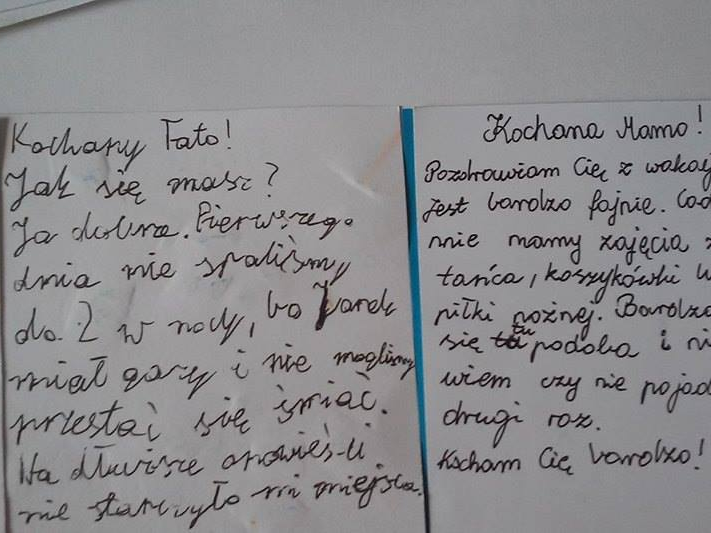 Kochany Tato!
Jak się masz?
Ja dobrze. Pierwszego
dnia nie spaliśmy
do. 2 w nocy, bo Jarek
miał gazy i nie mogliśmy
przestać się śmiać.
Na dłuższe
nie starczyło mi miejsca.
Kochana Mamo!
Pozdrawiam Cię z wakaj
jest bardzo fajnie. Cod
nnie mamy zajęcia z
tańca, koszykówki
piłki nożnej. Bardzo
się tu podoba i ni
wiem czy nie pojad
drugi raz.
Kocham Cię bardzo!